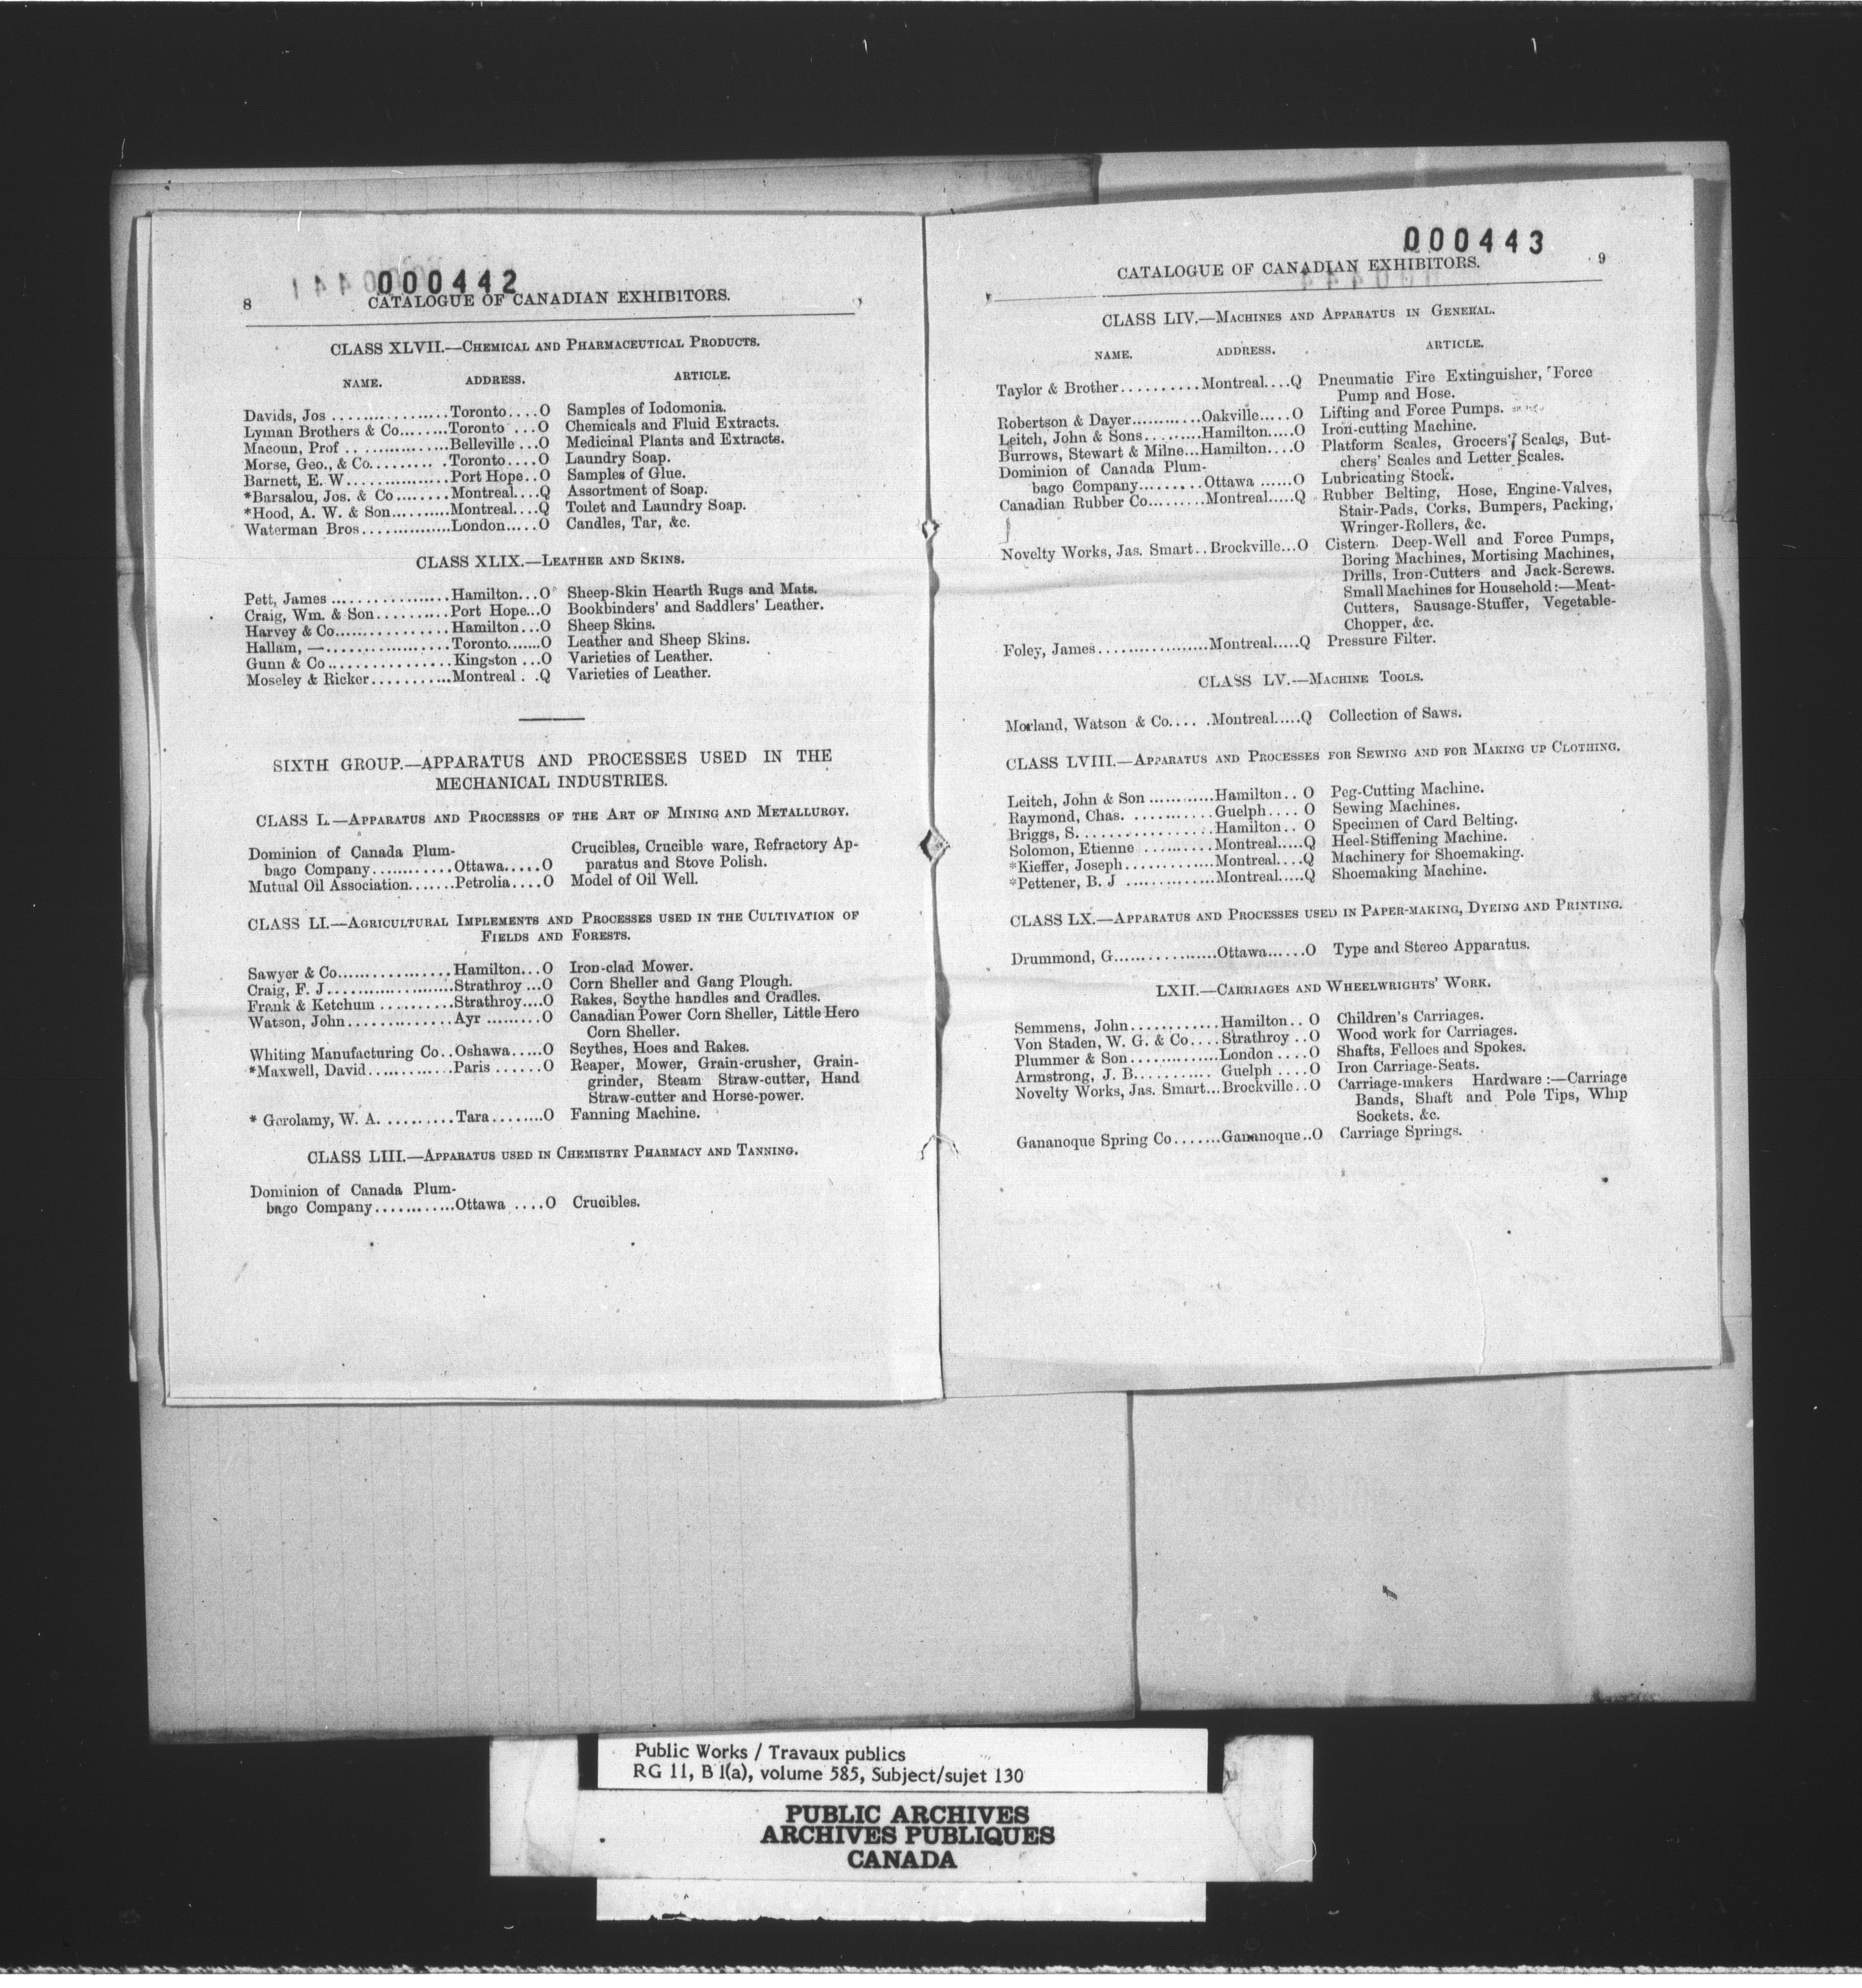 000442
8 CATALOGUE OF CANADIAN EXHIBITORS.
CLASS XLVII.—CHEMICAL AND PHARMACEUTICAL PRODUCTS.
NAME. ADDRESS. ARTICLE.
Davids, Jos ................Toronto....O Samples of Iodomonia.
Lyman Brothers & Co........Toronto ...O Chemicals and Fluid Extracts.
Macoun, Prof ...............Belleville ...O Medicinal Plants and Extracts.
Morse, Geo., & Co..........Toronto....O Laundry Soap.
Barnett, E. W...............Port Hope..O Samples of Glue.
*Barsalou, Jos. & Co ........Montreal....Q Assortment of Soap.
*Hood, A. W. & Son.........Montreal....Q Toilet and Laundry Soap.
Waterman Bros..............London.....O Candles, Tar, &c.
CLASS XLIX.—LEATHER AND SKINS.
Pett, James .................Hamilton...O Sheep-Skin Hearth Rugs and Mats.
Craig, Wm. & Son..........Port Hope...O Bookbinders' and Saddlers' Leather.
Harvey & Co................Hamilton...O Sheep Skins.
Hallam, —..................Toronto.......O Leather and Sheep Skins.
Gunn & Co.................Kingston ...O Varieties of Leather.
Moseley & Ricker...........Montreal . .Q Varieties of Leather.
SIXTH GROUP.—APPARATUS AND PROCESSES USED IN THE
MECHANICAL INDUSTRIES.
CLASS L.—APPARATUS AND PROCESSES OF THE ART OF MINING AND METALLURGY.
Dominion of Canada Plum- Crucibles, Crucible ware, Refractory Ap-
bago Company...........Ottawa.....O paratus and Stove Polish.
Mutual Oil Association.......Petrolia....O Model of Oil Well.
CLASS LI.—AGRICULTURAL IMPLEMENTS AND PROCESSES USED IN THE CULTIVATION OF
FIELDS AND FORESTS.
Sawyer & Co................Hamilton...O Iron-clad Mower.
Craig, F. J..................Strathroy ...O Corn Sheller and Gang Plough.
Frank & Ketchum ..........Strathroy....O Rakes, Scythe handles and Cradles.
Watson, John...............Ayr .........O Canadian Power Corn Sheller, Little Hero
Corn Sheller.
Whiting Manufacturing Co..Oshawa.....O Scythes, Hoes and Rakes.
*Maxwell, David............Paris ......O Reaper, Mower, Grain-crusher, Grain-
grinder, Steam Straw-cutter, Hand
Straw-cutter and Horse-power.
* Gerolamy, W. A. ..........Tara........O Fanning Machine.
CLASS LIII.—APPARATUS USED IN CHEMISTRY PHARMACY AND TANNING.
Dominion of Canada Plum-
bago Company...........Ottawa ....O Crucibles.
000443
CATALOGUE OF CANADIAN EXHIBITORS. 9
CLASS LIV.—MACHINES AND APPARATUS IN GENERAL.
NAME. ADDRESS. ARTICLE.
Taylor & Brother..........Montreal....Q Pneumatic Fire Extinguisher, Force
Pump and Hose.
Robertson & Dayer..........Oakville.....O Lifting and Force Pumps.
Leitch, John & Sons.........Hamilton.....O Iron-cutting Machine.
Burrows, Stewart & Milne...Hamilton....O Platform Scales, Grocers' Scales, But-
chers' Scales and Letter Scales.
Dominion of Canada Plum-
bago Company.........Ottawa ......O Lubricating Stock.
Canadian Rubber Co........Montreal.....Q Rubber Belting, Hose, Engine-Valves,
Stair-Pads, Corks, Bumpers, Packing,
Wringer-Rollers, &c.
Novelty Works, Jas. Smart..Brockville...O Cistern, Deep-Well and Force Pumps,
Boring Machines, Mortising Machines,
Drills, Iron-Cutters and Jack-Screws.
Small Machines for Household:—Meat-
Cutters, Sausage-Stuffer, Vegetable-
Chopper, &c.
Foley, James................Montreal.....Q Pressure Filter.
CLASS LV.—MACHINE TOOLS.
Morland, Watson & Co.... .Montreal.....Q Collection of Saws.
CLASS LVIII.—APPARATUS AND PROCESSES FOR SEWING AND FOR MAKING UP CLOTHING.
Leitch, John & Son ..........Hamilton.. O Peg-Cutting Machine.
Raymond, Chas. ...........Guelph.... O Sewing Machines.
Briggs, S. .................Hamilton.. O Specimen of Card Belting.
Solomon, Etienne ..........Montreal.....Q Heel-Stiffening Machine.
*Kieffer, Joseph............Montreal....Q Machinery for Shoemaking.
*Pettener, B. J .............Montreal.....Q Shoemaking Machine.
CLASS LX.—APPARATUS AND PROCESSES USED IN PAPER-MAKING, DYEING AND PRINTING.
Drummond, G...............Ottawa......O Type and Stereo Apparatus.
LXII.—CARRIAGES AND WHEELWRIGHTS' WORK.
Semmens, John............Hamilton.. O Children's Carriages.
Von Staden, W. G. & Co....Strathroy ..O Wood work for Carriages.
Plummer & Son.............London ....O Shafts, Felloes and Spokes.
Armstrong, J. B.......... Guelph ....O Iron Carriage-Seats.
Novelty Works, Jas. Smart...Brockville..O Carriage-makers Hardware:—Carriage
Bands, Shaft and Pole Tips, Whip
Sockets, &c.
Gananoque Spring Co.......Gananoque..O Carriage Springs.
Public Works / Travaux publics
RG 11, B 1(a), volume 585, Subject/sujet 130
PUBLIC ARCHIVES
ARCHIVES PUBLIQUES
CANADA